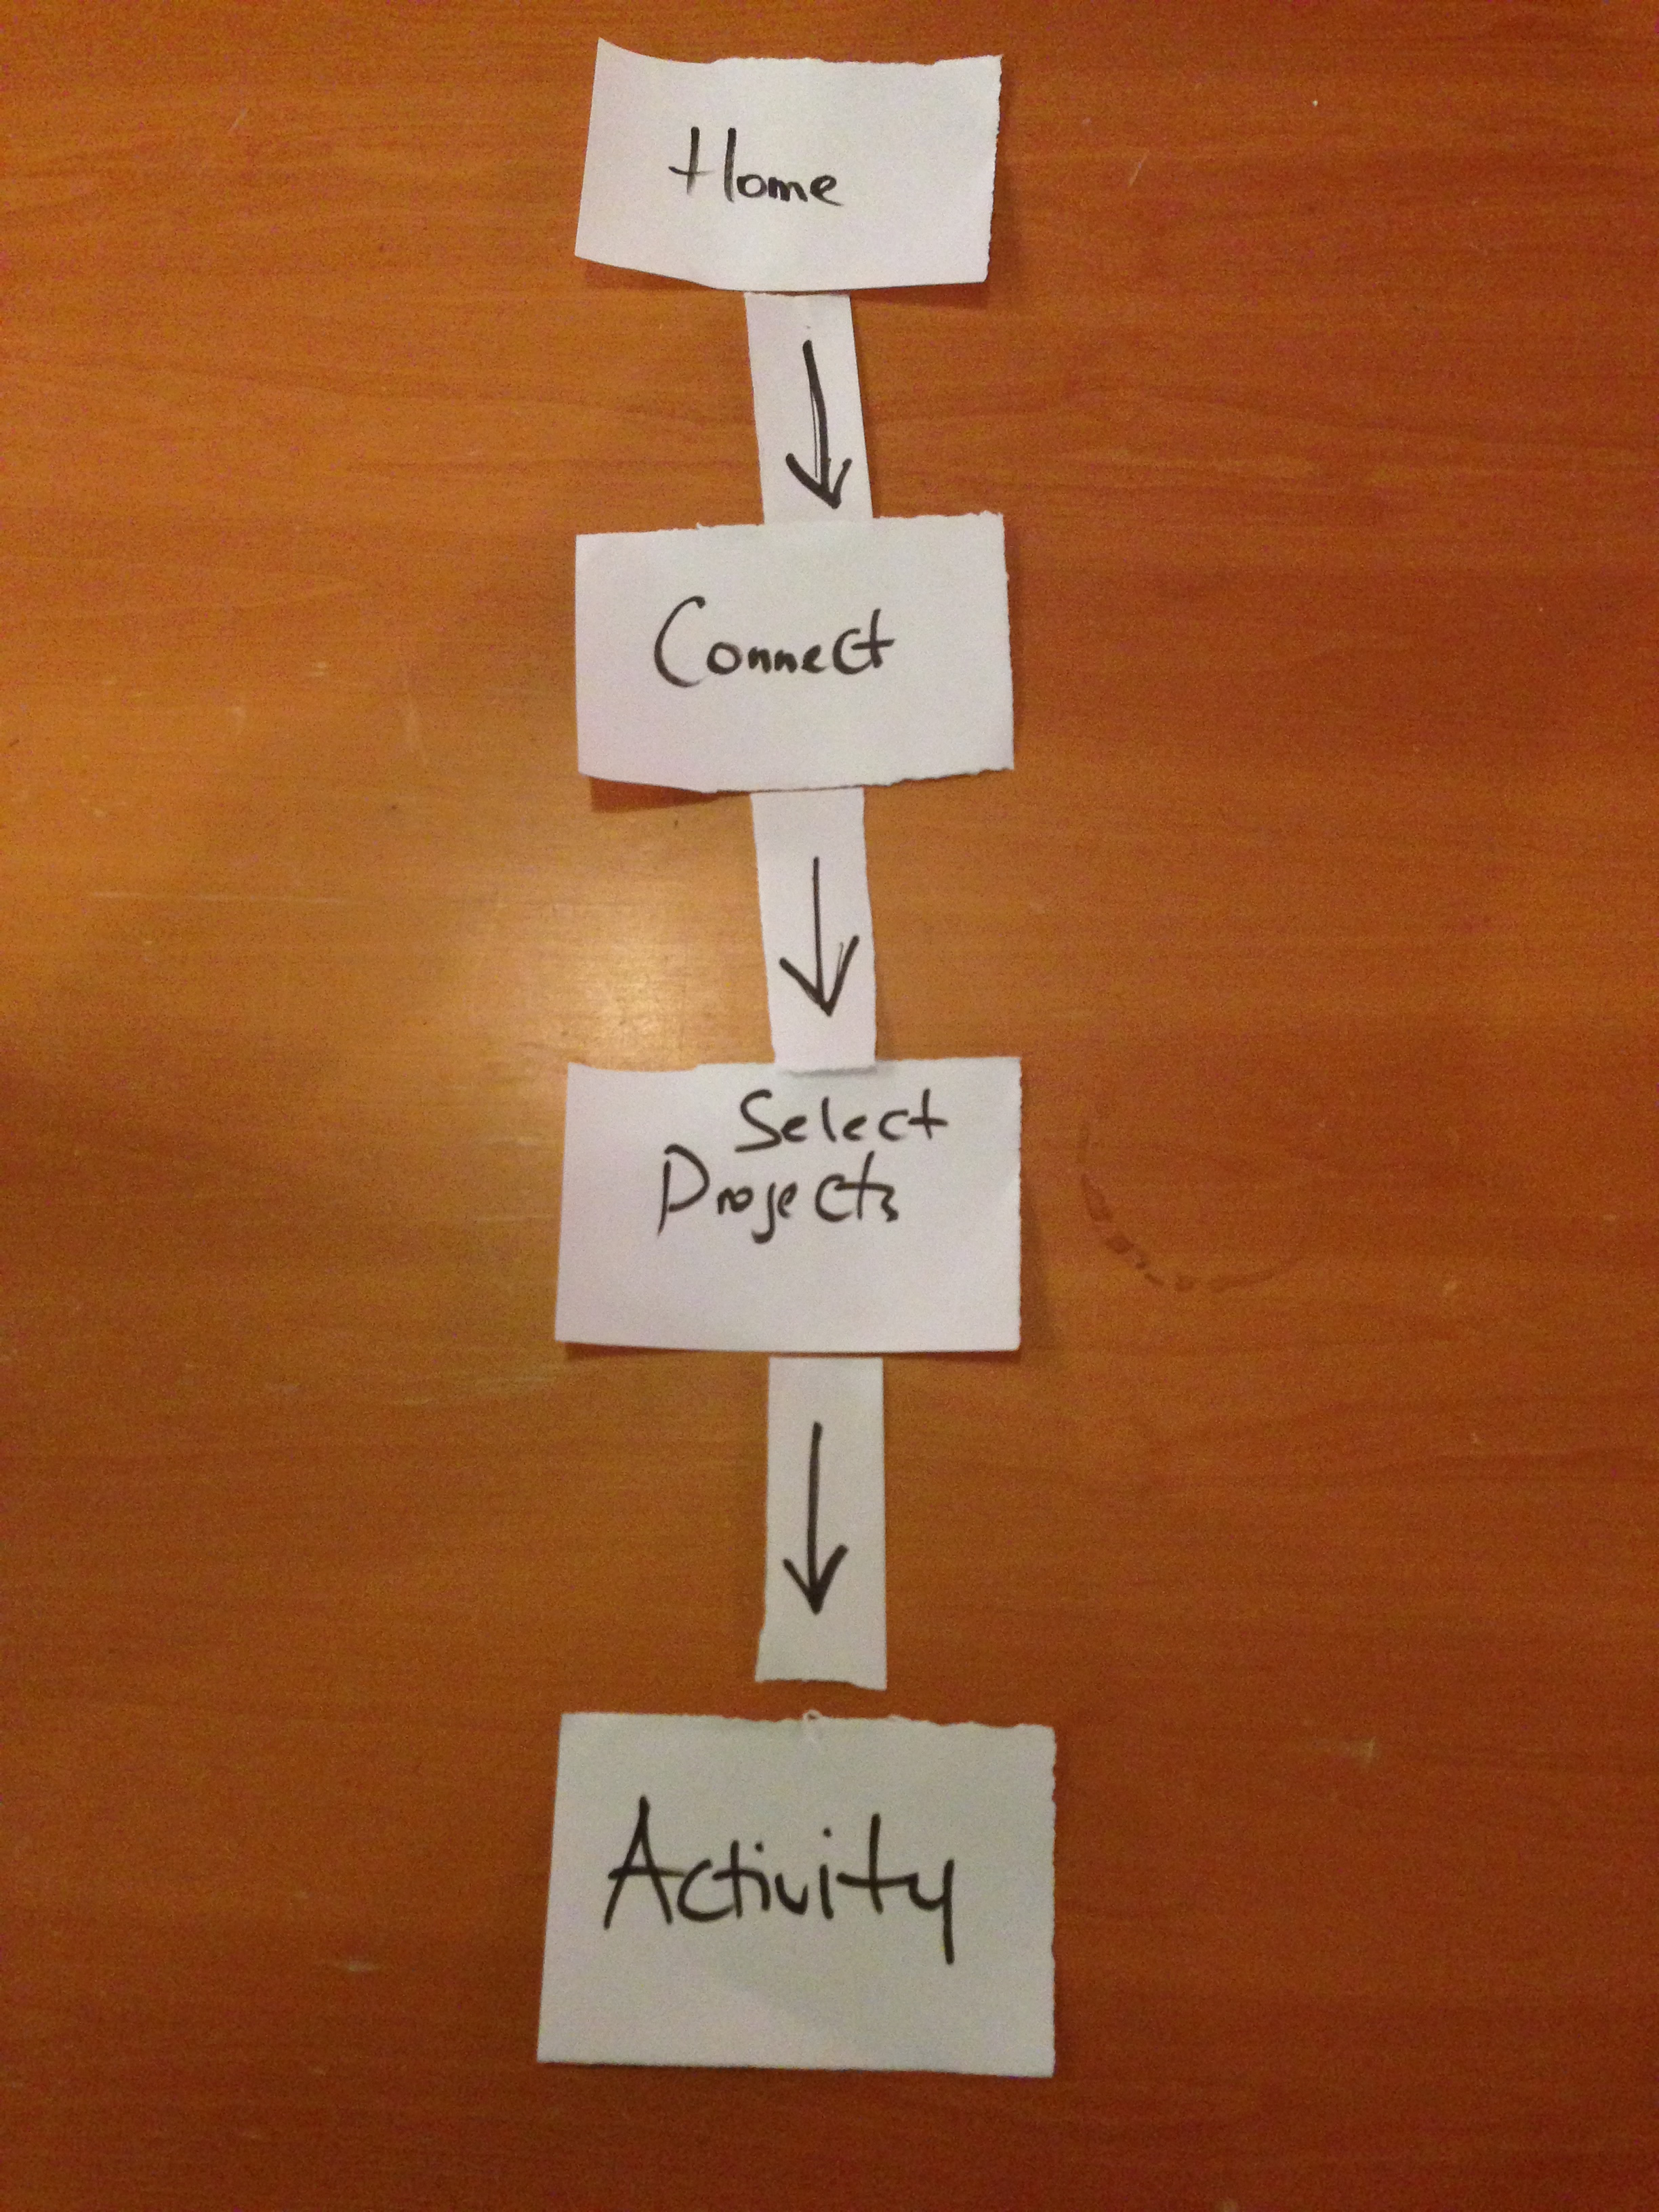 Home
Connect
Select
Projects
Activity